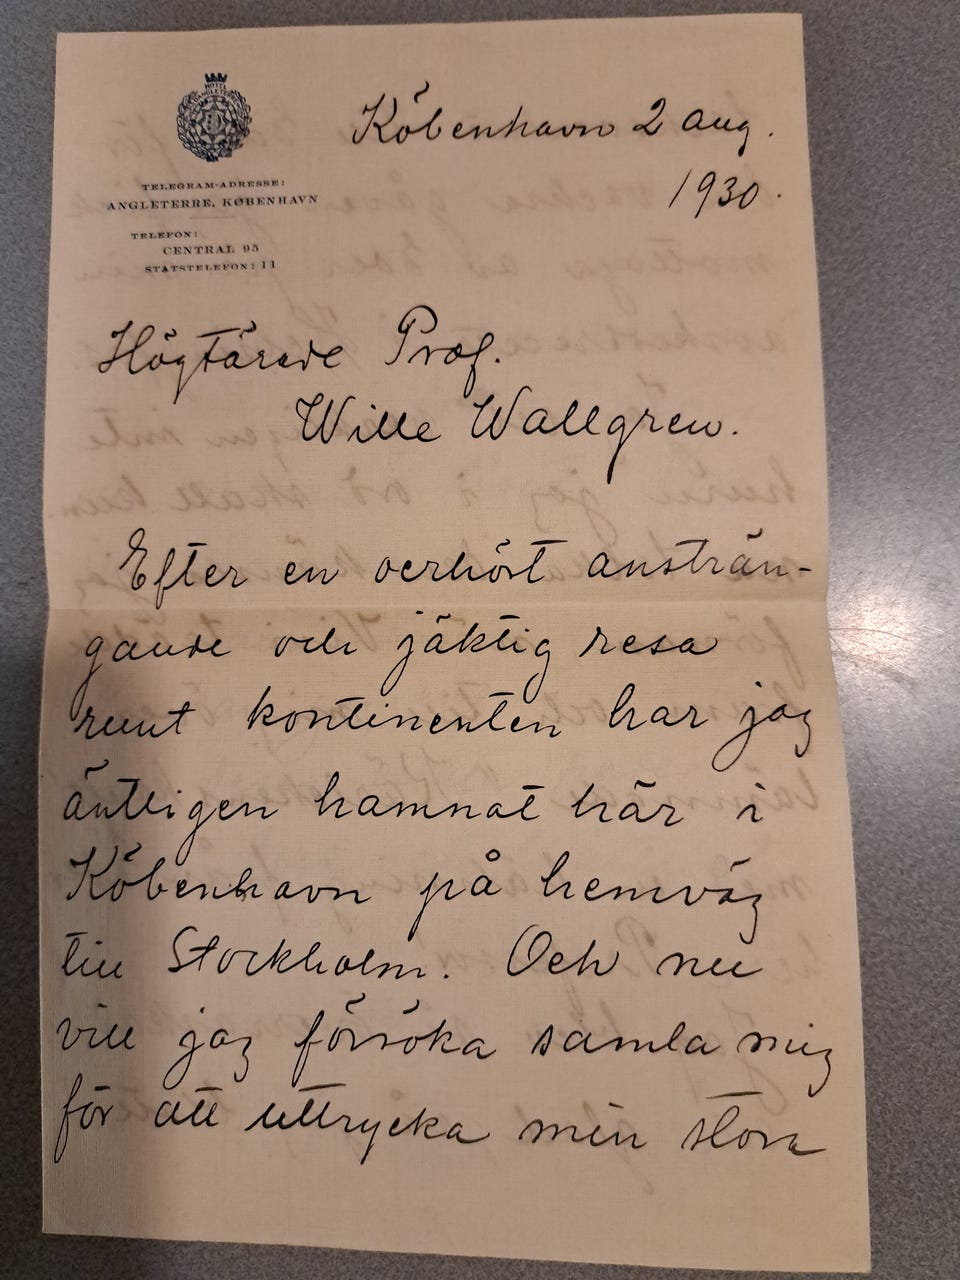 HOTEL
D'ANGLETERRE
København 2 aug.
1930.
TELEGRAM-ADRESSE:
ANGLETERRE, KØBENHAVN
TELEFON:
CENTRAL 95
STATSTELEFON: 11
Högtärade Prof.
Wille Wallgren.
Efter en oerhört ansträn-
gande och jäktig resa
runt kontinenten har jag
äntligen hamnat här i
København på hemväg
till Stockholm. Och nu
vill jag försöka samla mig
för att uttrycka min stora